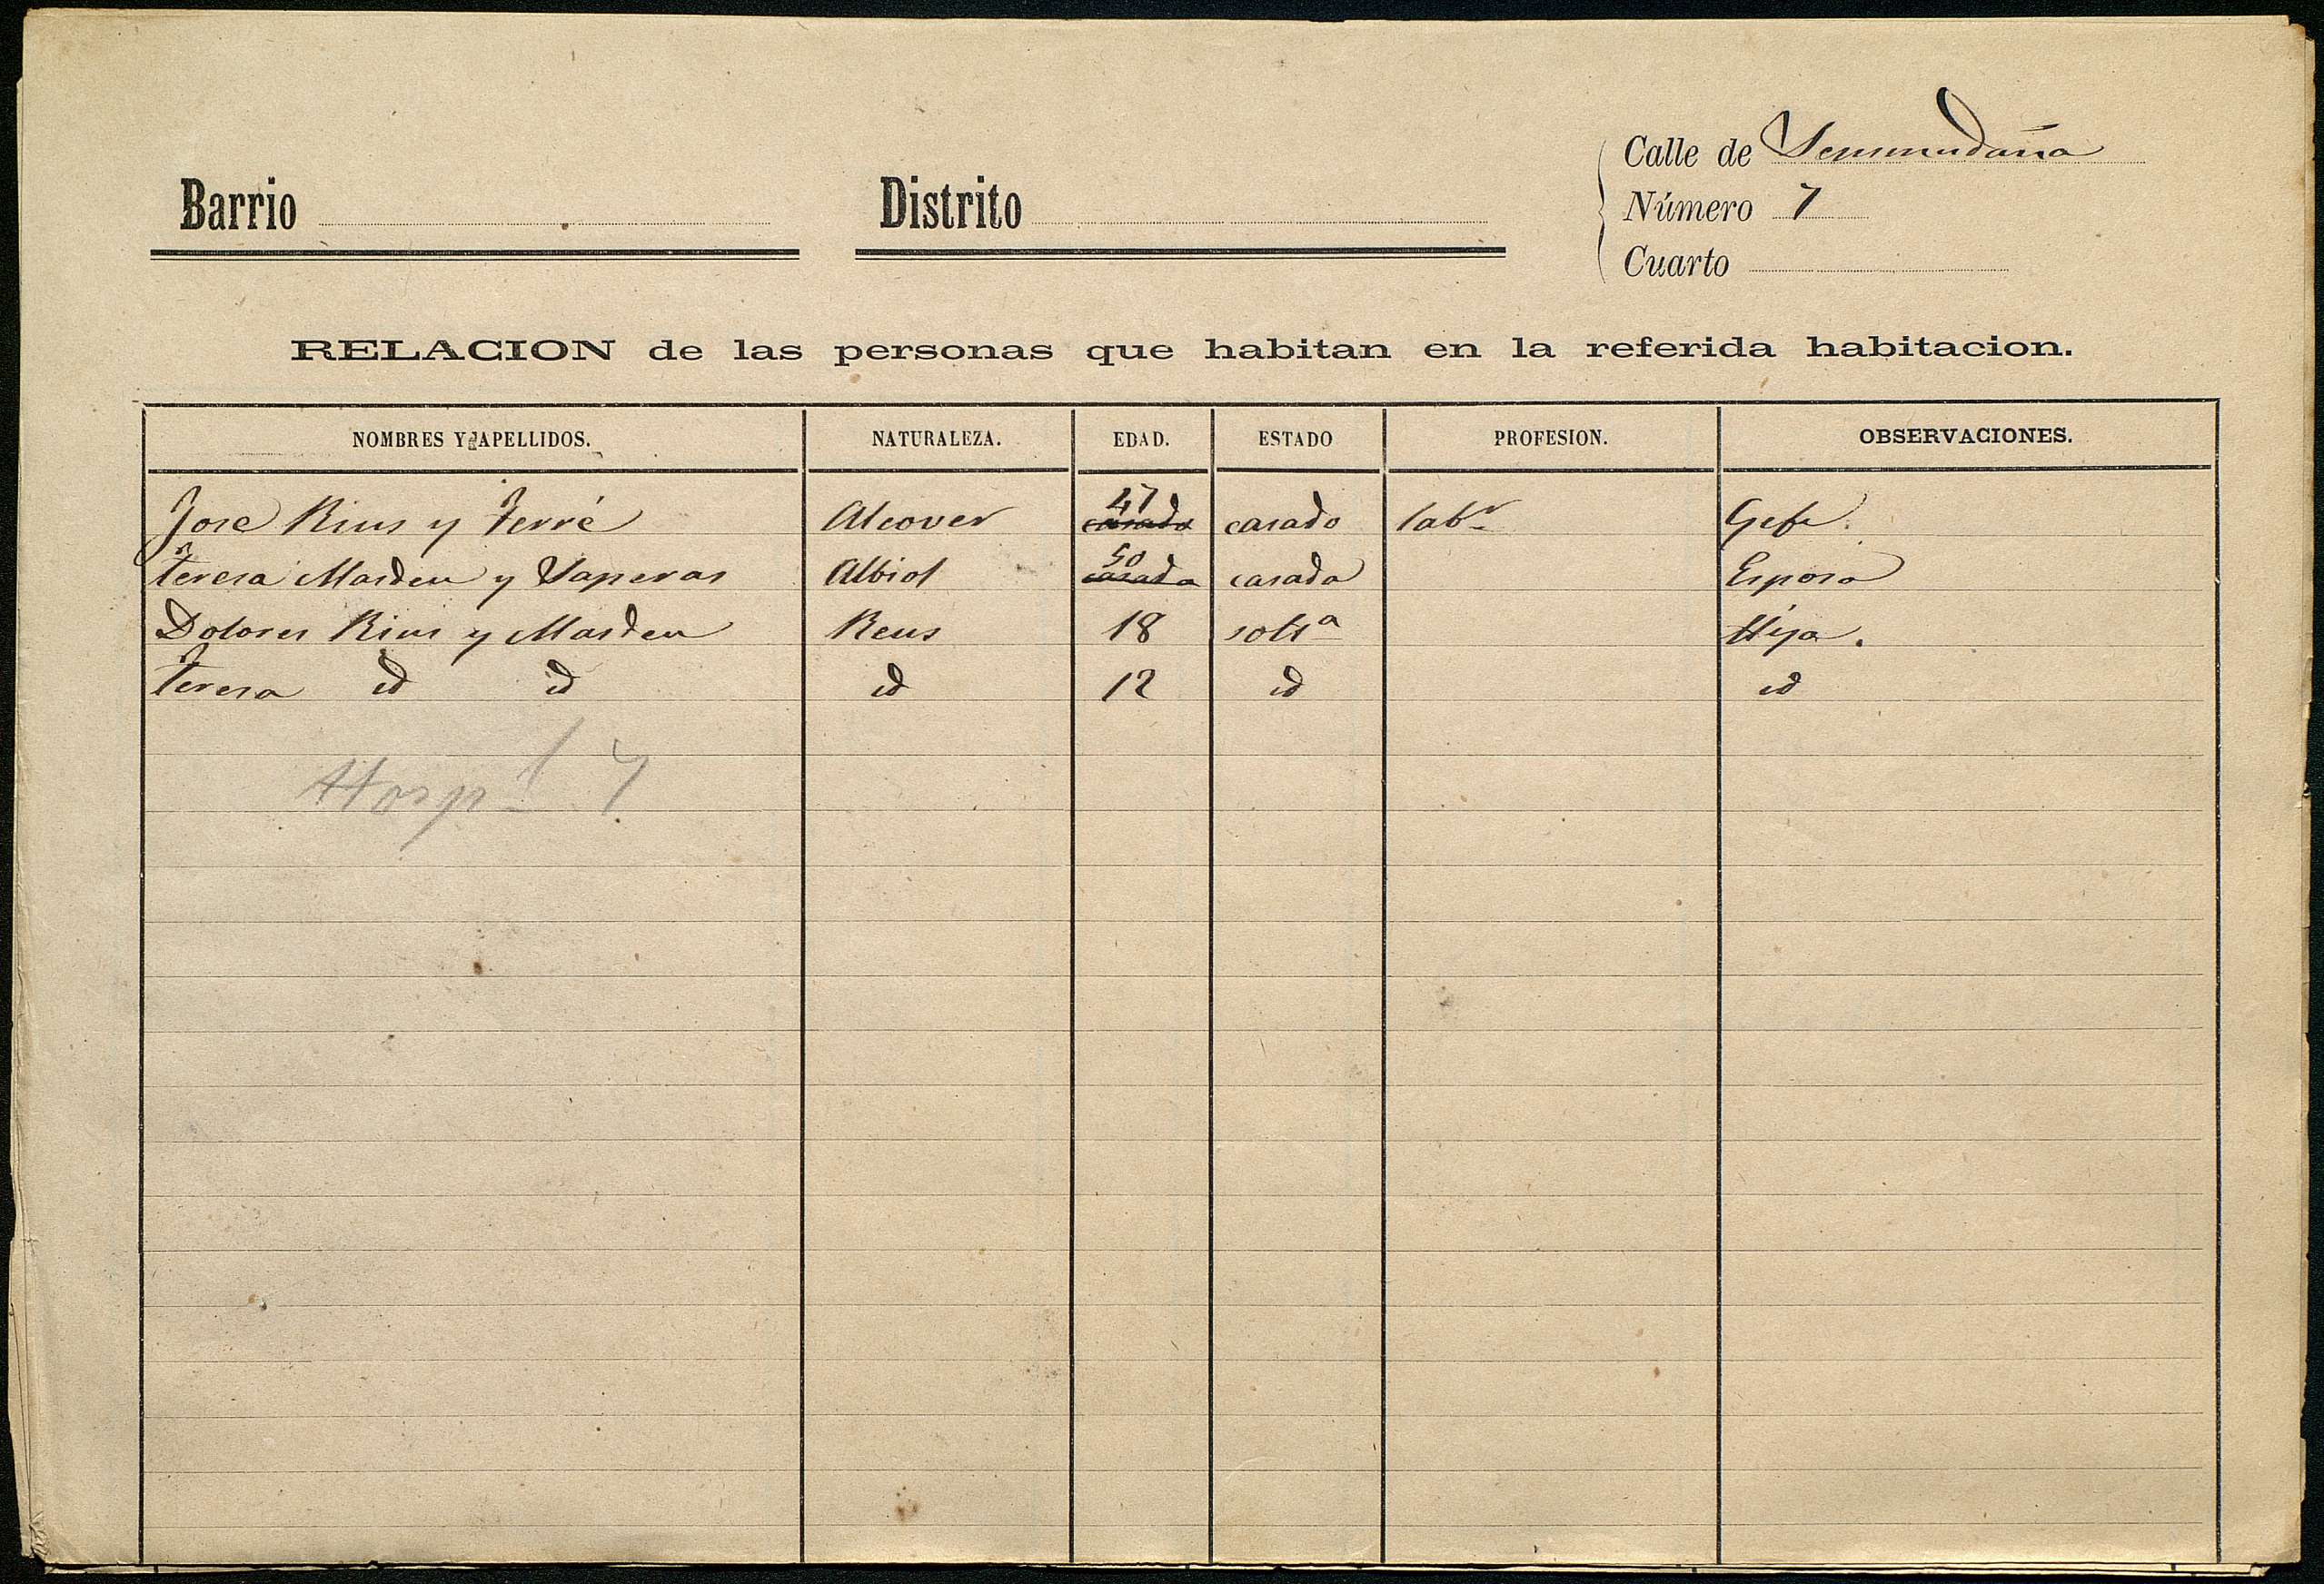 Calle de Semmudaña
Barrio Distrito Número 7
Cuarto
RELACION de las personas que habitan en la referida habitacion.
NOMBRES Y APELLIDOS. NATURALEZA. EDAD. ESTADO PROFESION. OBSERVACIONES.
Jose Rius y Ferré Alcover 47 casado casado labr Gefe.
Teresa Masdeu y Saperas Albiol 50 casada casada Esposa
Dolores Rius y Masdeu Reus 18 solta Hija.
Teresa id id id 12 id id
Hospl 7